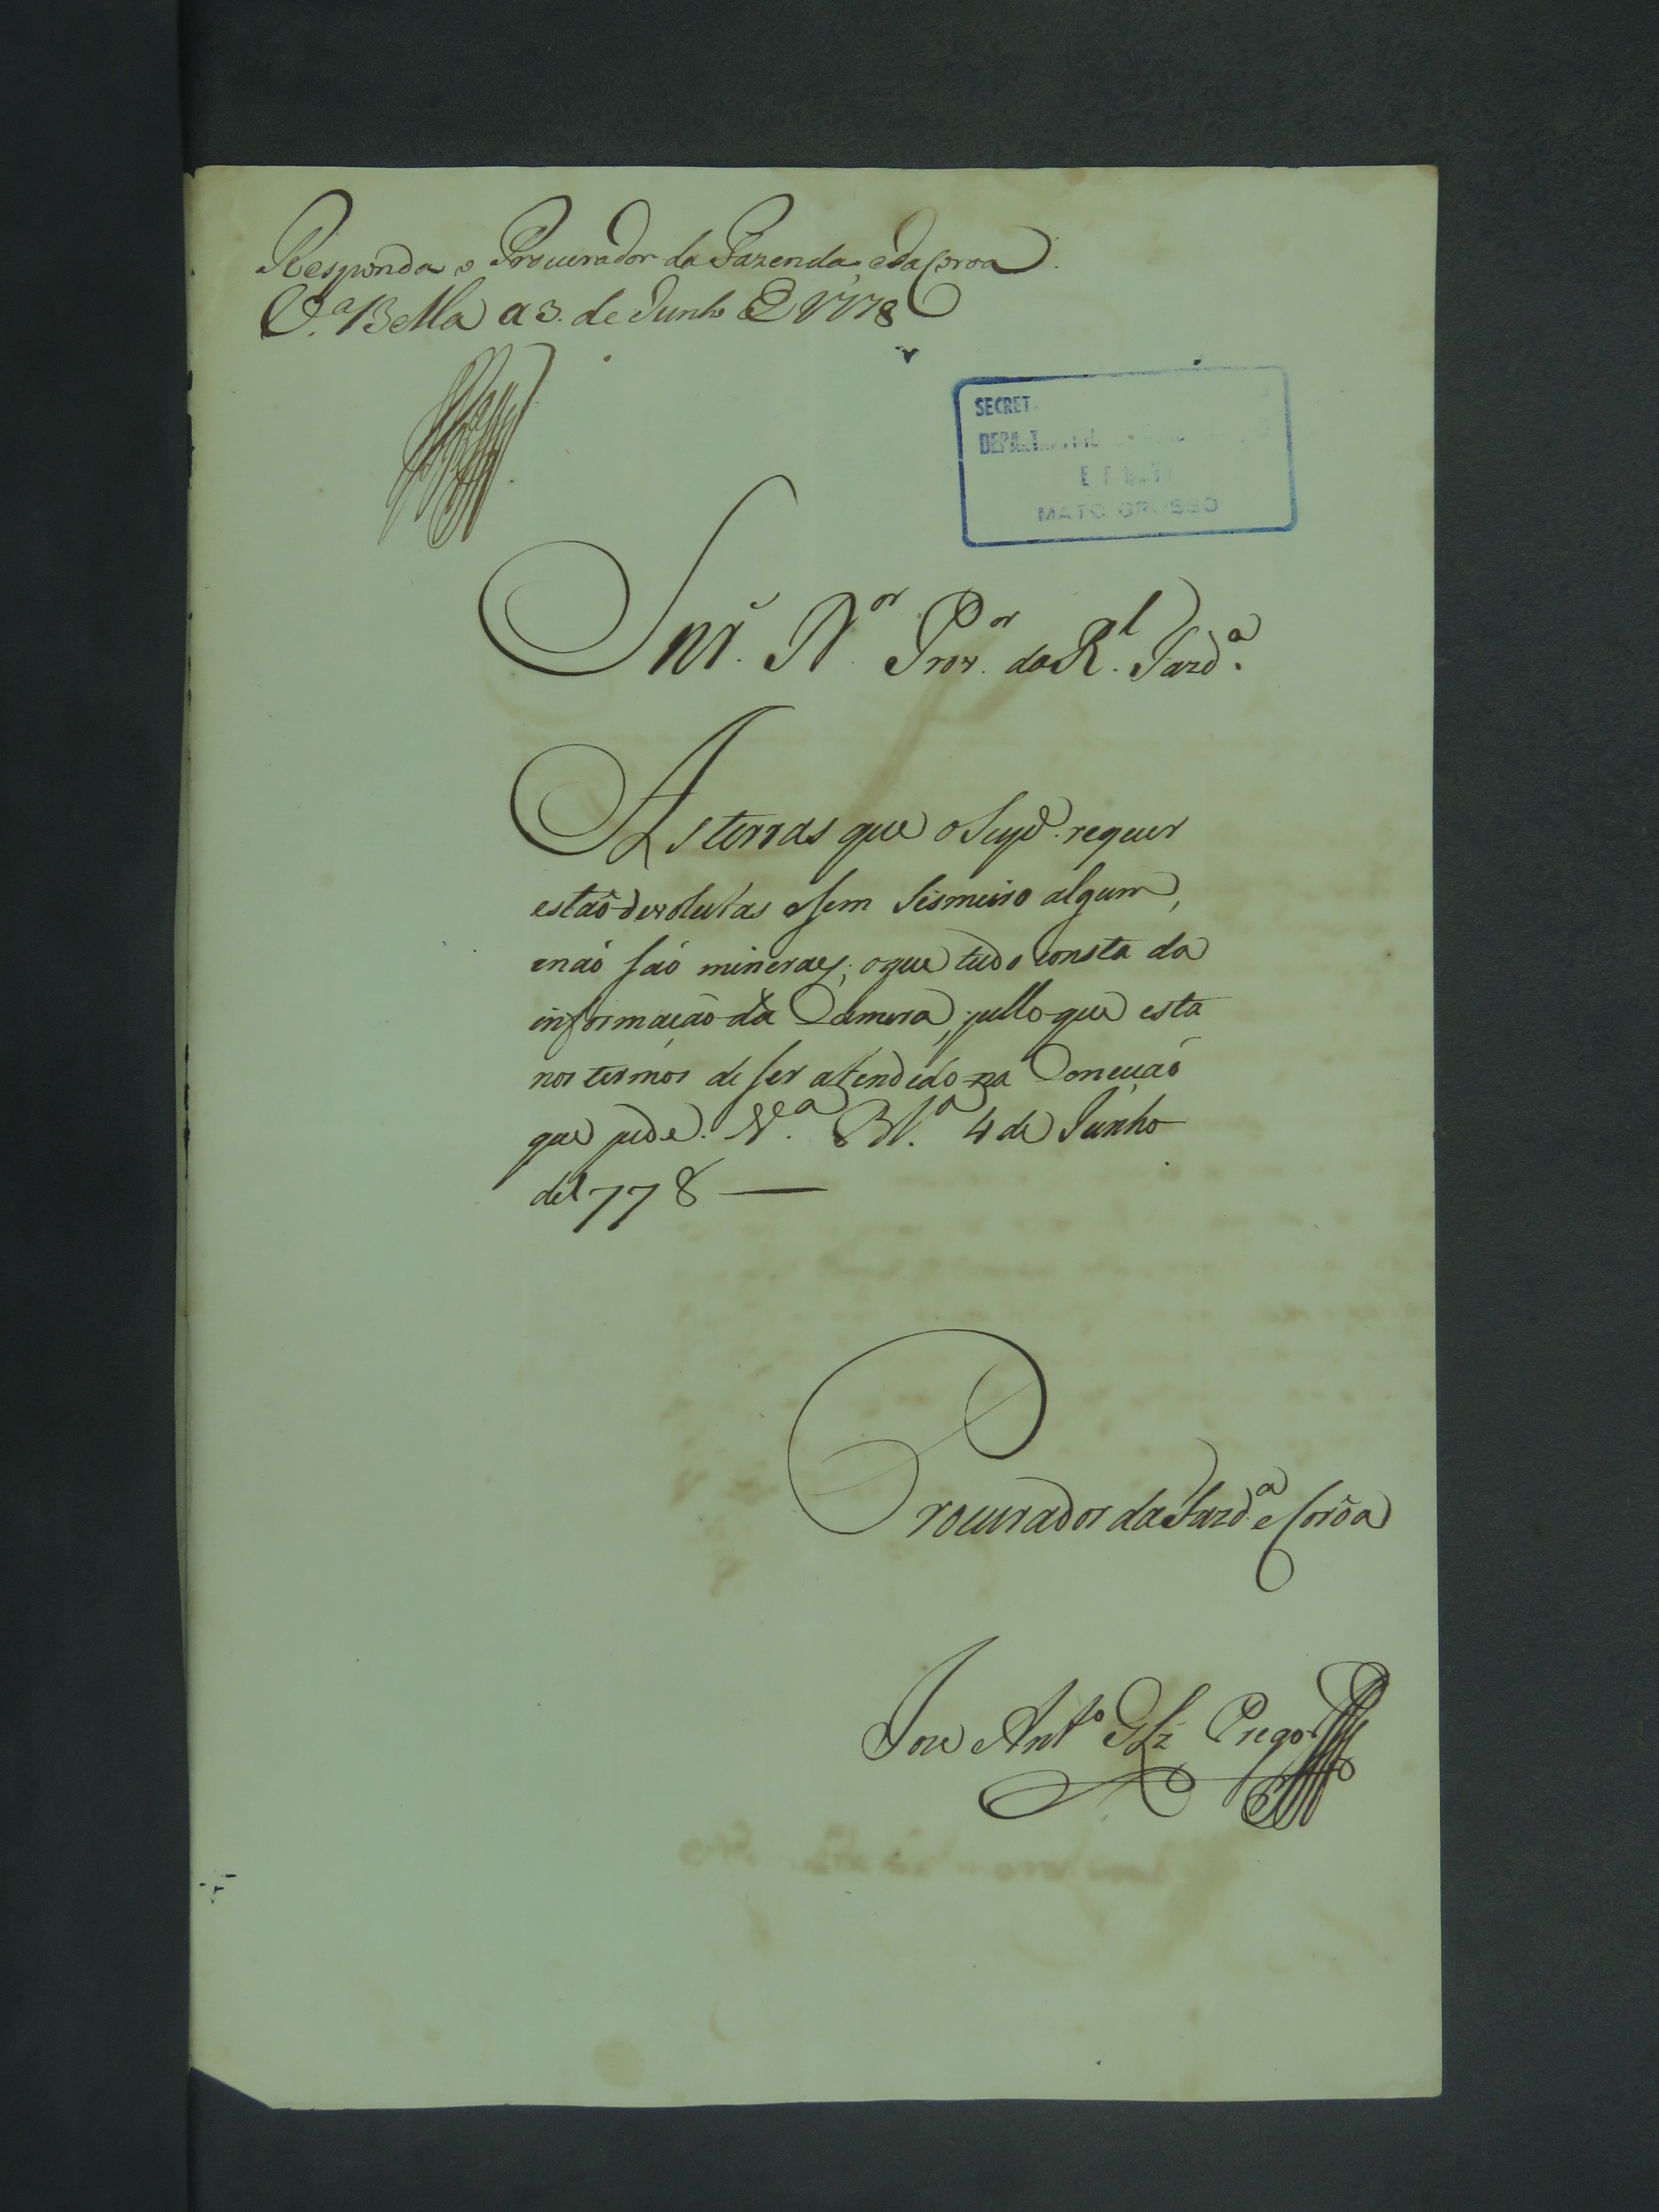 Responda o Procurador da Fazenda, e da Coroa.
V.ª Bella a 3. de Junho de 1778
SECRET
MATO GROSSO
Snr. D.or Prov.or da R.l Fazd.ª
As terras que o Sup.e requer
estaõ devolutas e sem Sismeiro algum,
e naõ saõ mineraes; o que tudo consta da
informaçaõ da Camera, pello que esta
nos termos de ser atendido na Conceçaõ
que pede. V.ª B.ª 4 de Junho
de 1778 —
Procurador da Fazd.ª e Corôa
Joze Ant.º Glz Prego